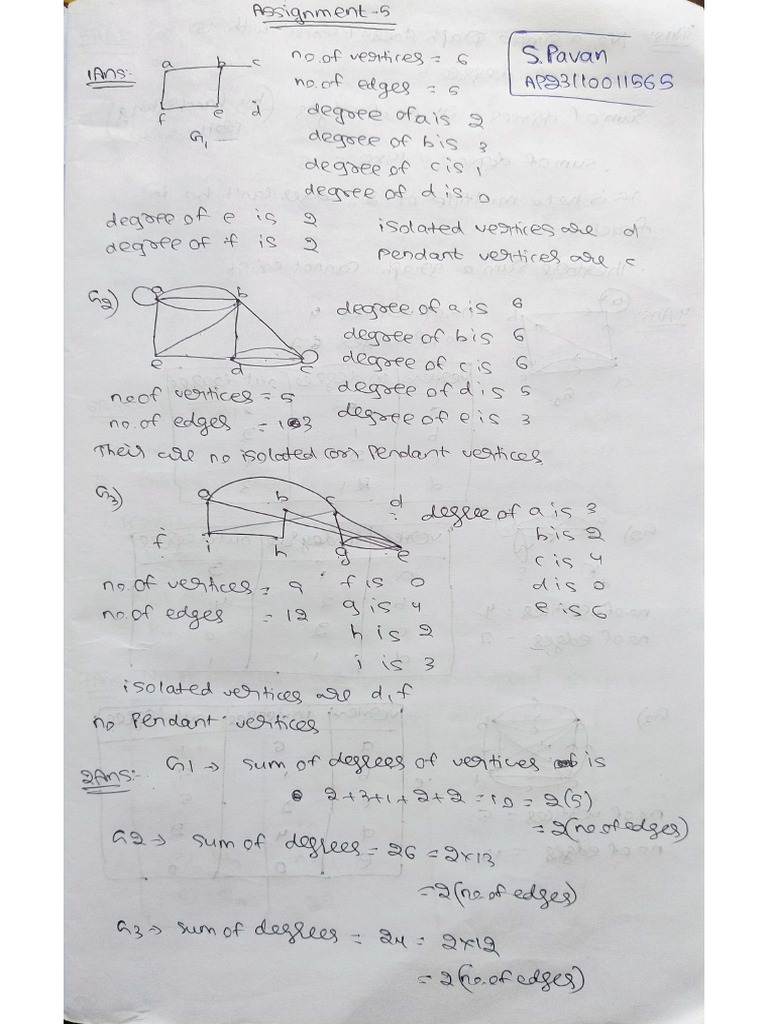 Assignment-5
S. Pavan
AP23110011565
1Ans:-
a b c
f e d
G1
no. of vertices = 6
no. of edges = 5
degree of a is 2
degree of b is 3
degree of c is 1
degree of d is 0
degree of e is 2
degree of f is 2
isolated vertices are d
Pendant vertices are c
G2)
a b
e d c
degree of a is 6
degree of b is 6
degree of c is 6
degree of d is 5
degree of e is 3
no of vertices = 5
no. of edges = 13
Their are no isolated (or) Pendant vertices
G3)
a b c d
f i h g e
degree of a is 3
b is 2
c is 4
d is 0
e is 6
no. of vertices = 9
no. of edges = 12
f is 0
g is 4
h is 2
i is 3
isolated vertices are d, f
no Pendant vertices
2Ans:-
G1 → sum of degrees of vertices is
2+3+1+2+2 = 10 = 2(5)
= 2(no of edges)
G2 → sum of degrees = 26 = 2×13
= 2(no. of edges)
G3 → sum of degrees = 24 = 2×12
= 2(no. of edges)